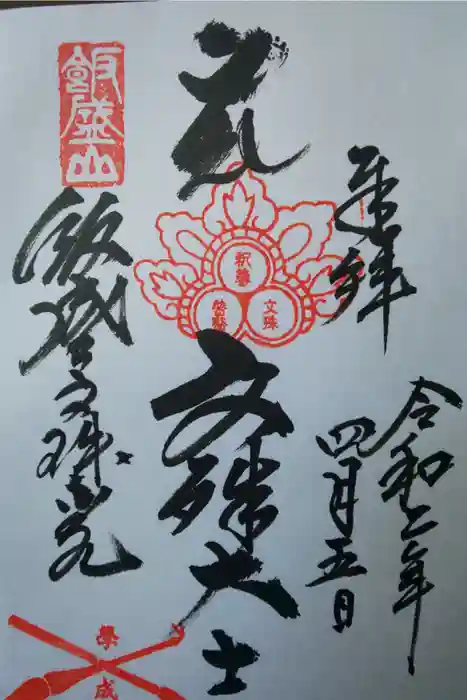 奉拝
令和二年
四月五日
文殊大士
釈尊
文殊
普賢
飯盛山
飯盛文殊堂
學成